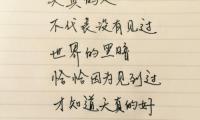 不代表没有见过
世界的黑暗
恰恰因为见到过
才知道天真的好